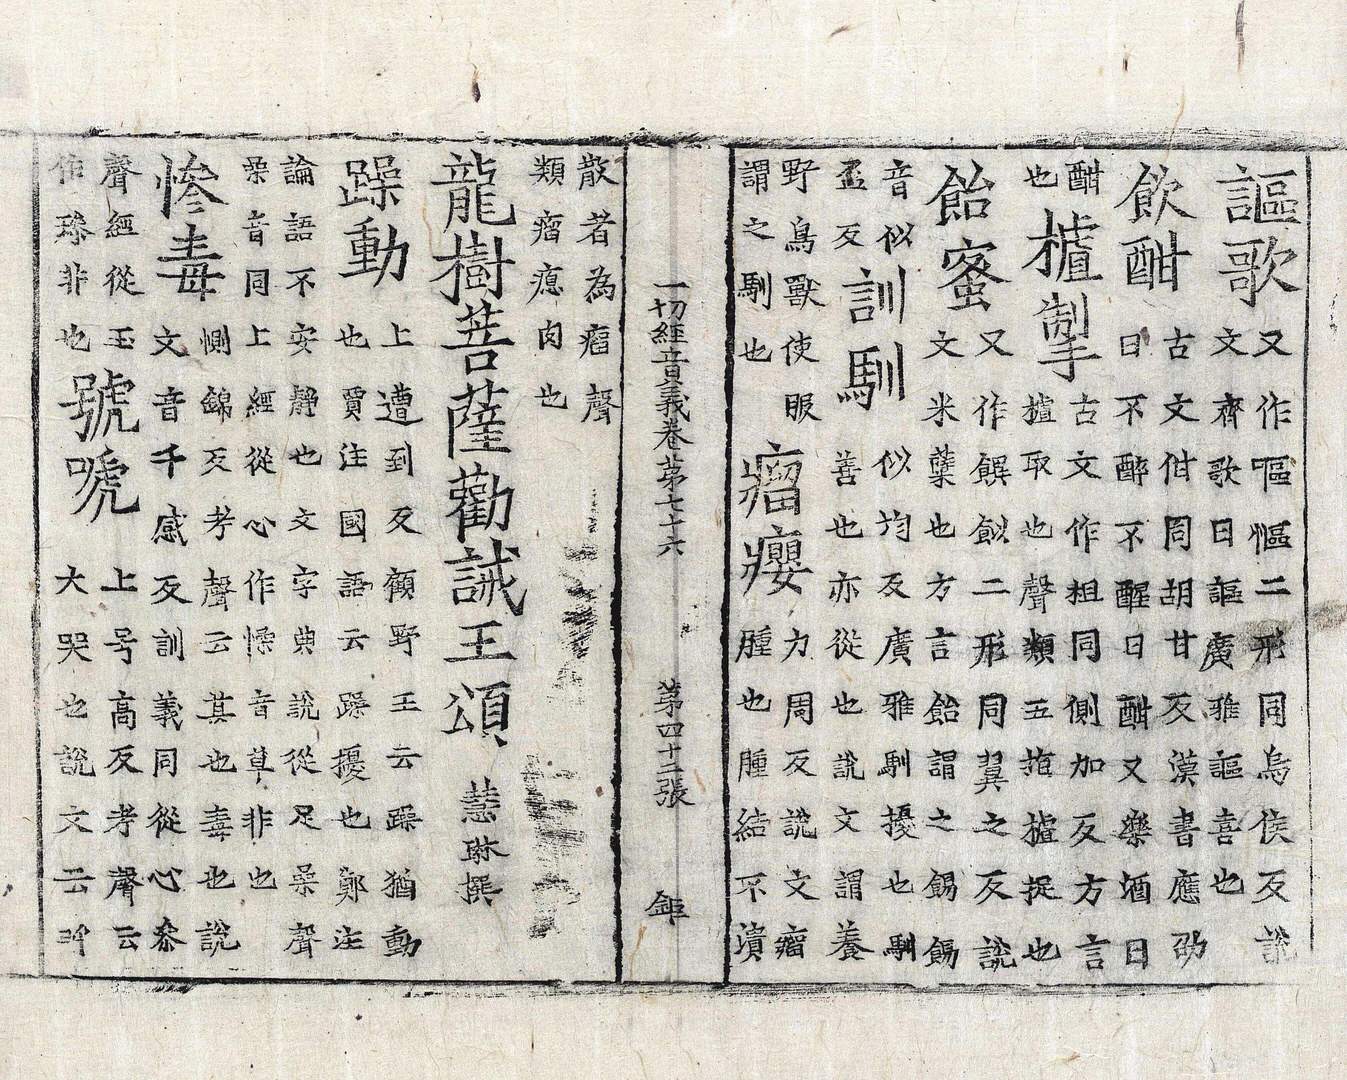 謳歌
又作嘔慪二形同烏侯反說
文齊歌曰謳廣雅謳喜也
飲酣
古文佄同胡甘反漢書應劭
曰不醉不醒曰酣又樂酒曰
酣
也
樝掣
古文作柤同側加反方言
樝取也聲類五指樝捉也
飴蜜
又作䬾二形同翼之反說
文米蘖也方言飴謂之餳餳
音似
盃反
訓馴
似均反廣雅馴擾也馴
善也亦從也說文謂養
野鳥獸使服
謂之馴也
瘤癭
力周反說文瘤
腫也腫結不潰
一切經音義卷第七十六 第四十二張 鉅
散者為瘤聲
類瘤瘜肉也
龍樹菩薩勸誡王頌 慧琳撰
躁動
上遭到反顧野王云躁猶動
也賈注國語云躁擾也鄭注
論語不安靜也文字典說從足喿聲
喿音同上經從心作懆音草非也
慘毒
惻錦反考聲云甚也毒也說
文音千感反訓義同從心叅
聲經從玉
作瑧非也
號唬
上号高反考聲云
大哭也說文云呼